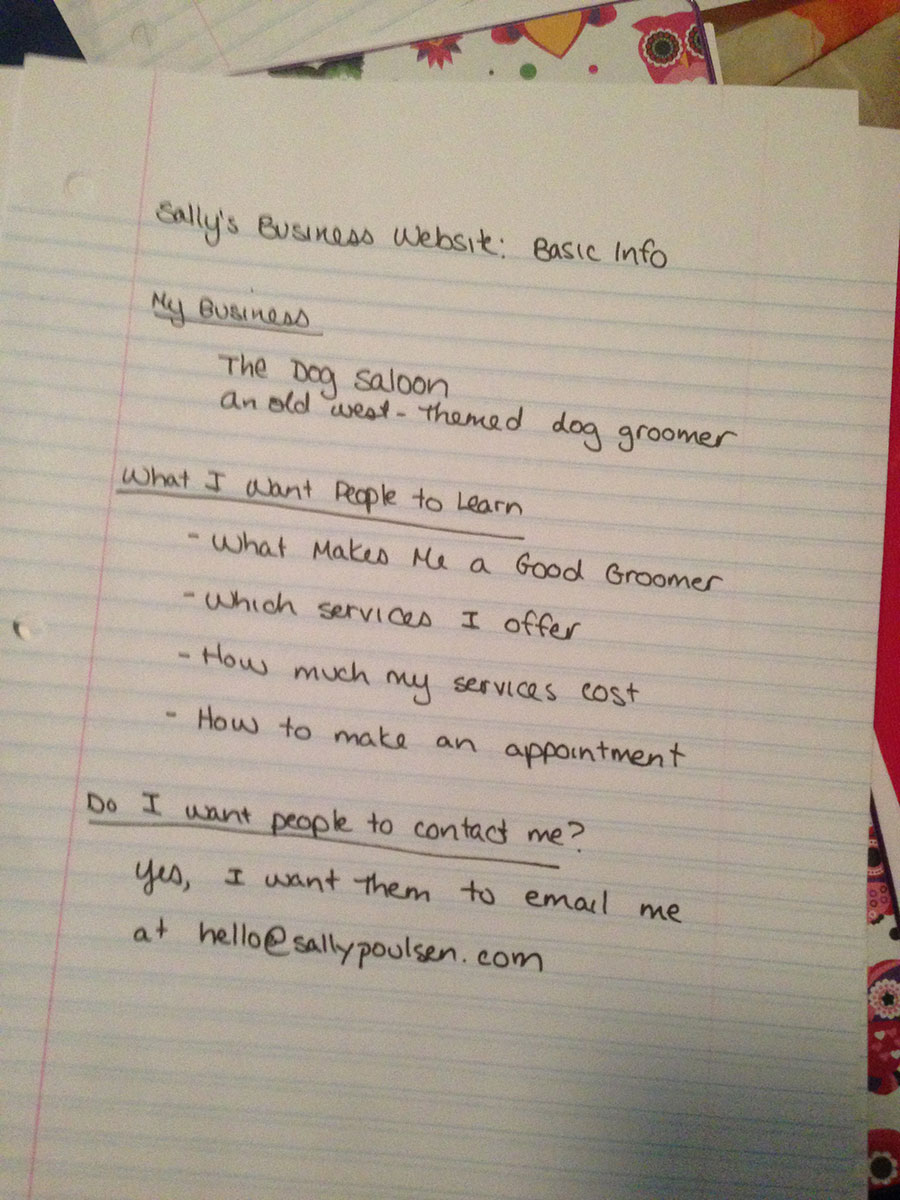 Sally's Business Website: Basic Info
My Business
The Dog Saloon
an old west-themed dog groomer
What I Want People to Learn
- What Makes Me a Good Groomer
- Which services I offer
- How much my services cost
- How to make an appointment
Do I want people to contact me?
Yes, I want them to email me
at hello@sallypoulsen.com